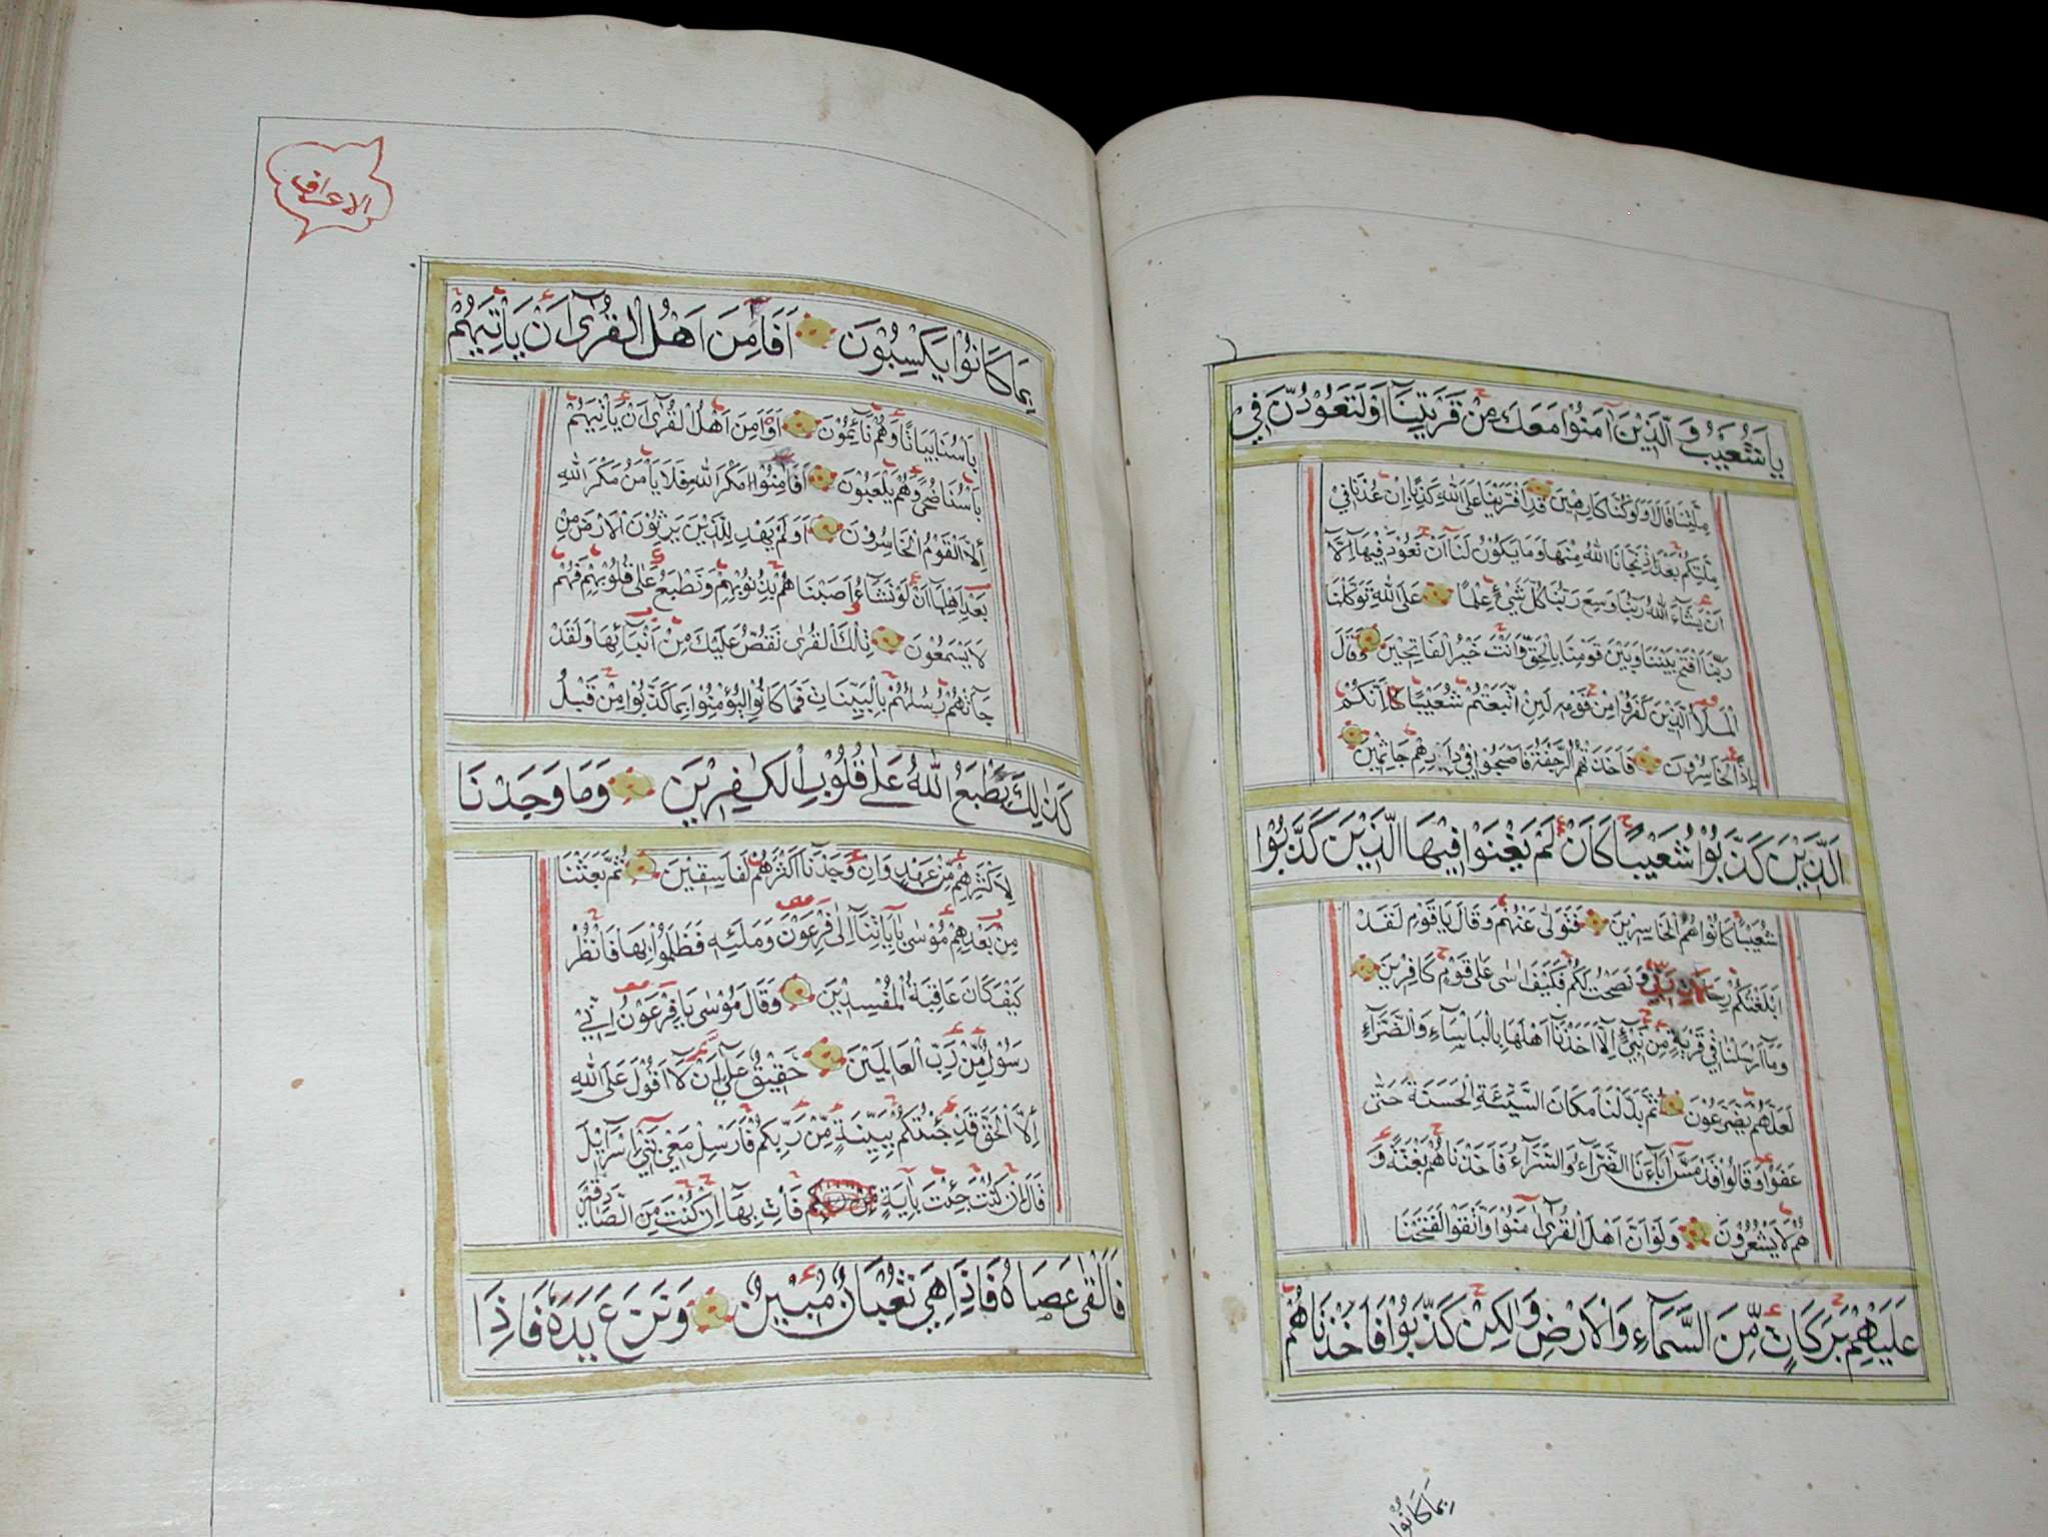 يَا شُعَيْبُ وَالَّذِيْنَ آمَنُوْا مَعَكَ مِنْ قَرْيَتِنَا اَوْ لَتَعُوْدُنَّ فِيْ
مِلَّتِنَا قَالَ اَوَلَوْ كُنَّا كَارِهِيْنَ قَدِ افْتَرَيْنَا عَلَى اللهِ كَذِبًا اِنْ عُدْنَا فِيْ
مِلَّتِكُمْ بَعْدَ اِذْ نَجَّانَا اللهُ مِنْهَا وَمَا يَكُوْنُ لَنَا اَنْ نَعُوْدَ فِيْهَا اِلَّا
اَنْ يَشَآءَ اللهُ رَبُّنَا وَسِعَ رَبُّنَا كُلَّ شَيْءٍ عِلْمًا عَلَى اللهِ تَوَكَّلْنَا
رَبَّنَا افْتَحْ بَيْنَنَا وَبَيْنَ قَوْمِنَا بِالْحَقِّ وَاَنْتَ خَيْرُ الْفَاتِحِيْنَ وَقَالَ
الْمَلَاُ الَّذِيْنَ كَفَرُوْا مِنْ قَوْمِهِ لَئِنِ اتَّبَعْتُمْ شُعَيْبًا اِنَّكُمْ
اِذًا لَخَاسِرُوْنَ فَاَخَذَتْهُمُ الرَّجْفَةُ فَاَصْبَحُوْا فِيْ دَارِهِمْ جَاثِمِيْنَ
اَلَّذِيْنَ كَذَّبُوْا شُعَيْبًا كَاَنْ لَمْ يَغْنَوْا فِيْهَا الَّذِيْنَ كَذَّبُوْا
شُعَيْبًا كَانُوْا هُمُ الْخَاسِرِيْنَ فَتَوَلّٰى عَنْهُمْ وَقَالَ يَا قَوْمِ لَقَدْ
اَبْلَغْتُكُمْ رِسَالَاتِ رَبِّيْ وَنَصَحْتُ لَكُمْ فَكَيْفَ اٰسٰى عَلٰى قَوْمٍ كَافِرِيْنَ
وَمَا اَرْسَلْنَا فِيْ قَرْيَةٍ مِنْ نَبِيٍّ اِلَّا اَخَذْنَا اَهْلَهَا بِالْبَاْسَآءِ وَالضَّرَّآءِ
لَعَلَّهُمْ يَضَّرَّعُوْنَ ثُمَّ بَدَّلْنَا مَكَانَ السَّيِّئَةِ الْحَسَنَةَ حَتّٰى
عَفَوْا وَقَالُوْا قَدْ مَسَّ اٰبَآءَنَا الضَّرَّآءُ وَالسَّرَّآءُ فَاَخَذْنَاهُمْ بَغْتَةً وَ
هُمْ لَا يَشْعُرُوْنَ وَلَوْ اَنَّ اَهْلَ الْقُرٰى اٰمَنُوْا وَاتَّقَوْا لَفَتَحْنَا
عَلَيْهِمْ بَرَكَاتٍ مِّنَ السَّمَآءِ وَالْاَرْضِ وَلٰكِنْ كَذَّبُوْا فَاَخَذْنَاهُمْ
بِمَا كَانُوْا
الاعراف
بِمَا كَانُوْا يَكْسِبُوْنَ اَفَاَمِنَ اَهْلُ الْقُرٰى اَنْ يَاْتِيَهُمْ
بَاْسُنَا بَيَاتًا وَهُمْ نَآئِمُوْنَ اَوَ اَمِنَ اَهْلُ الْقُرٰى اَنْ يَاْتِيَهُمْ
بَاْسُنَا ضُحًى وَهُمْ يَلْعَبُوْنَ اَفَاَمِنُوْا مَكْرَ اللهِ فَلَا يَاْمَنُ مَكْرَ اللهِ
اِلَّا الْقَوْمُ الْخَاسِرُوْنَ اَوَلَمْ يَهْدِ لِلَّذِيْنَ يَرِثُوْنَ الْاَرْضَ مِنْ
بَعْدِ اَهْلِهَا اَنْ لَوْ نَشَآءُ اَصَبْنَاهُمْ بِذُنُوْبِهِمْ وَنَطْبَعُ عَلٰى قُلُوْبِهِمْ فَهُمْ
لَا يَسْمَعُوْنَ تِلْكَ الْقُرٰى نَقُصُّ عَلَيْكَ مِنْ اَنْبَآئِهَا وَلَقَدْ
جَآءَتْهُمْ رُسُلُهُمْ بِالْبَيِّنَاتِ فَمَا كَانُوْا لِيُؤْمِنُوْا بِمَا كَذَّبُوْا مِنْ قَبْلُ
كَذٰلِكَ يَطْبَعُ اللهُ عَلٰى قُلُوْبِ الْكٰفِرِيْنَ وَمَا وَجَدْنَا
لِاَكْثَرِهِمْ مِّنْ عَهْدٍ وَاِنْ وَجَدْنَا اَكْثَرَهُمْ لَفَاسِقِيْنَ ثُمَّ بَعَثْنَا
مِنْ بَعْدِهِمْ مُوْسٰى بِاٰيَاتِنَا اِلٰى فِرْعَوْنَ وَمَلَئِهِ فَظَلَمُوْا بِهَا فَانْظُرْ
كَيْفَ كَانَ عَاقِبَةُ الْمُفْسِدِيْنَ وَقَالَ مُوْسٰى يَا فِرْعَوْنُ اِنِّيْ
رَسُوْلٌ مِّنْ رَبِّ الْعَالَمِيْنَ حَقِيْقٌ عَلٰى اَنْ لَا اَقُوْلَ عَلَى اللهِ
اِلَّا الْحَقَّ قَدْ جِئْتُكُمْ بِبَيِّنَةٍ مِّنْ رَّبِّكُمْ فَاَرْسِلْ مَعِيَ بَنِيْ اِسْرَآئِيْلَ
قَالَ اِنْ كُنْتَ جِئْتَ بِاٰيَةٍ فَاْتِ بِهَا اِنْ كُنْتَ مِنَ الصَّادِقِيْنَ
فَاَلْقٰى عَصَاهُ فَاِذَا هِيَ ثُعْبَانٌ مُّبِيْنٌ وَنَزَعَ يَدَهُ فَاِذَا